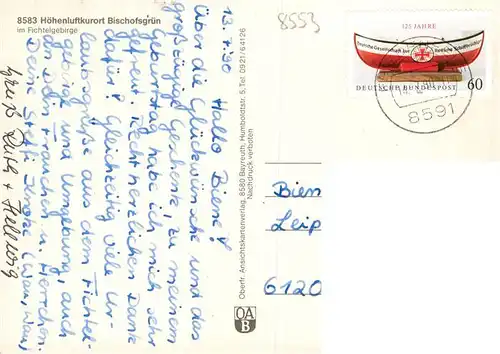 8583 Höhenluftkurort Bischofsgrün
im Fichtelgebirge
13.7.90 Hallo Biene!
Über die Glückwünsche und das
großzügige Geschenk, zu meinem
Geburtstag habe ich mich sehr
gefreut. Recht herzlichen Dank
dafür! Gleichzeitig viele Ur-
laubsgrüße aus dem Fichtel-
gebirge und Umgebung, auch
an dein Frauchen u. Herrchen.
Deine Steffi (Wau, Wau)
Gruß Ruth + Hellwig
Oberfr. Ansichtskartenverlag, 8580 Bayreuth, Humboldtstr. 5, Tel. 0921/64126
Nachdruck verboten
OA
B
8553
125 JAHRE
Deutsche Gesellschaft zur Rettung Schiffbrüchiger
DEUTSCHE BUNDESPOST 60
8591
Bien
Leip
6120